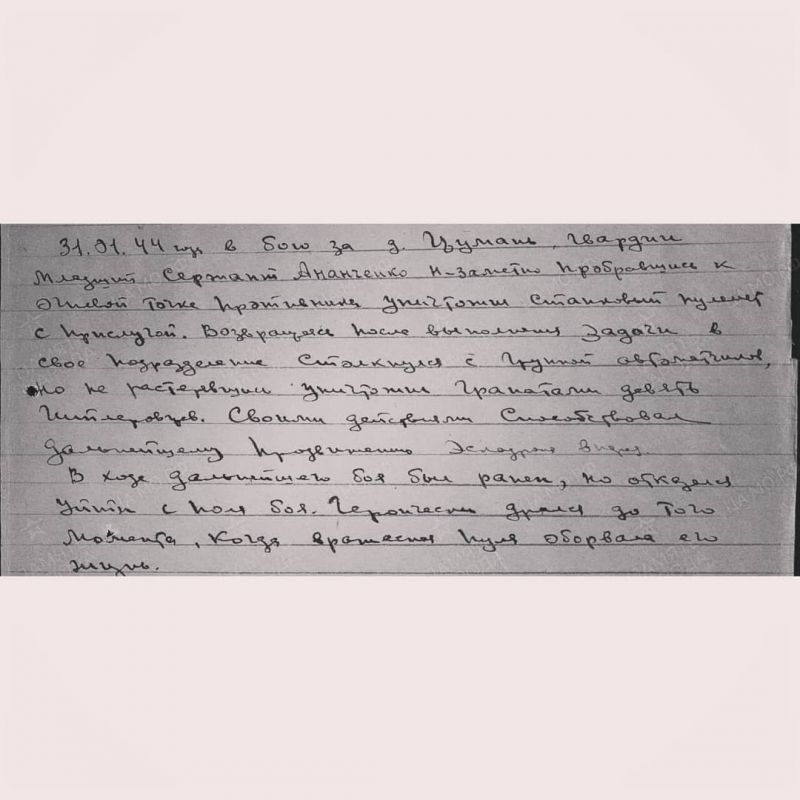 31.01.44 год в бою за д. Цумань, гвардии
младший сержант Ананченко н-заметно пробравшись к
огневой точке противника уничтожил станковый пулемет
с прислугой. Возвращаясь после выполнения задачи в
свое подразделение столкнулся с группой автоматчиков,
но не растерявшись уничтожил гранатами девять
гитлеровцев. Своими действиями способствовал
дальнейшему продвижению эскадрона вперед.
В ходе дальнейшего боя был ранен, но отказался
уйти с поля боя. Героически дрался до того
момента, когда вражеская пуля оборвала его
жизнь.